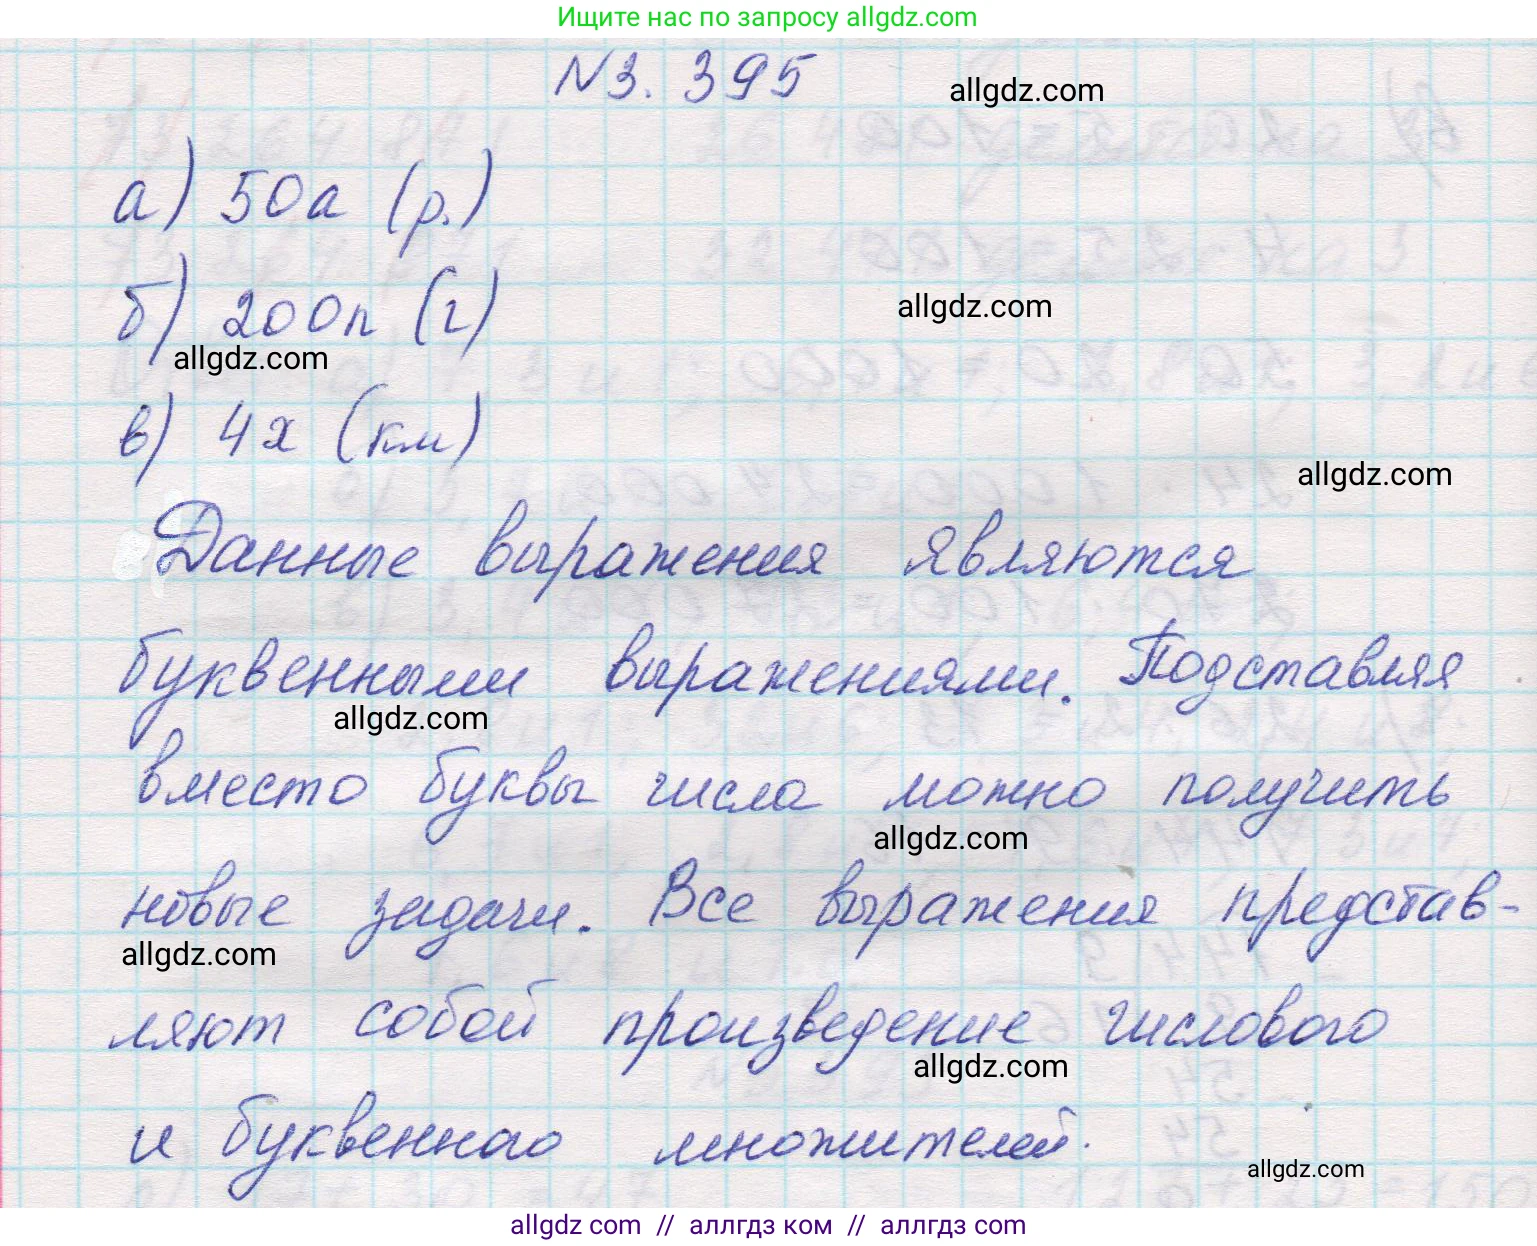 Ищите нас по запросу allgdz.com
№3. 395
allgdz.com
а) 50а (р.)
б) 200n (г)
allgdz.com
allgdz.com
в) 4x (км)
allgdz.com
Данные выражения являются
буквенными выражениями. Подставляя
allgdz.com
вместо буквы числа можно получить
allgdz.com
новые задачи. Все выражения представ-
allgdz.com
ляют собой произведение числового
allgdz.com
и буквенного множителей.
allgdz.com
allgdz com // аллгдз ком // аллгдз com